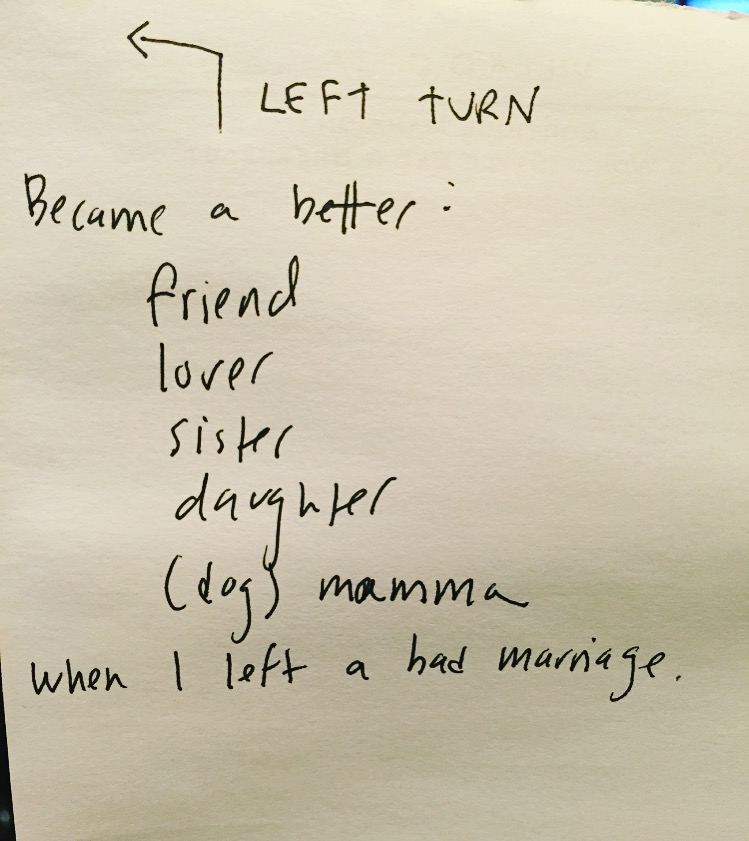 LEFT TURN
Became a better:
friend
lover
sister
daughter
(dog) mamma
when I left a bad marriage.